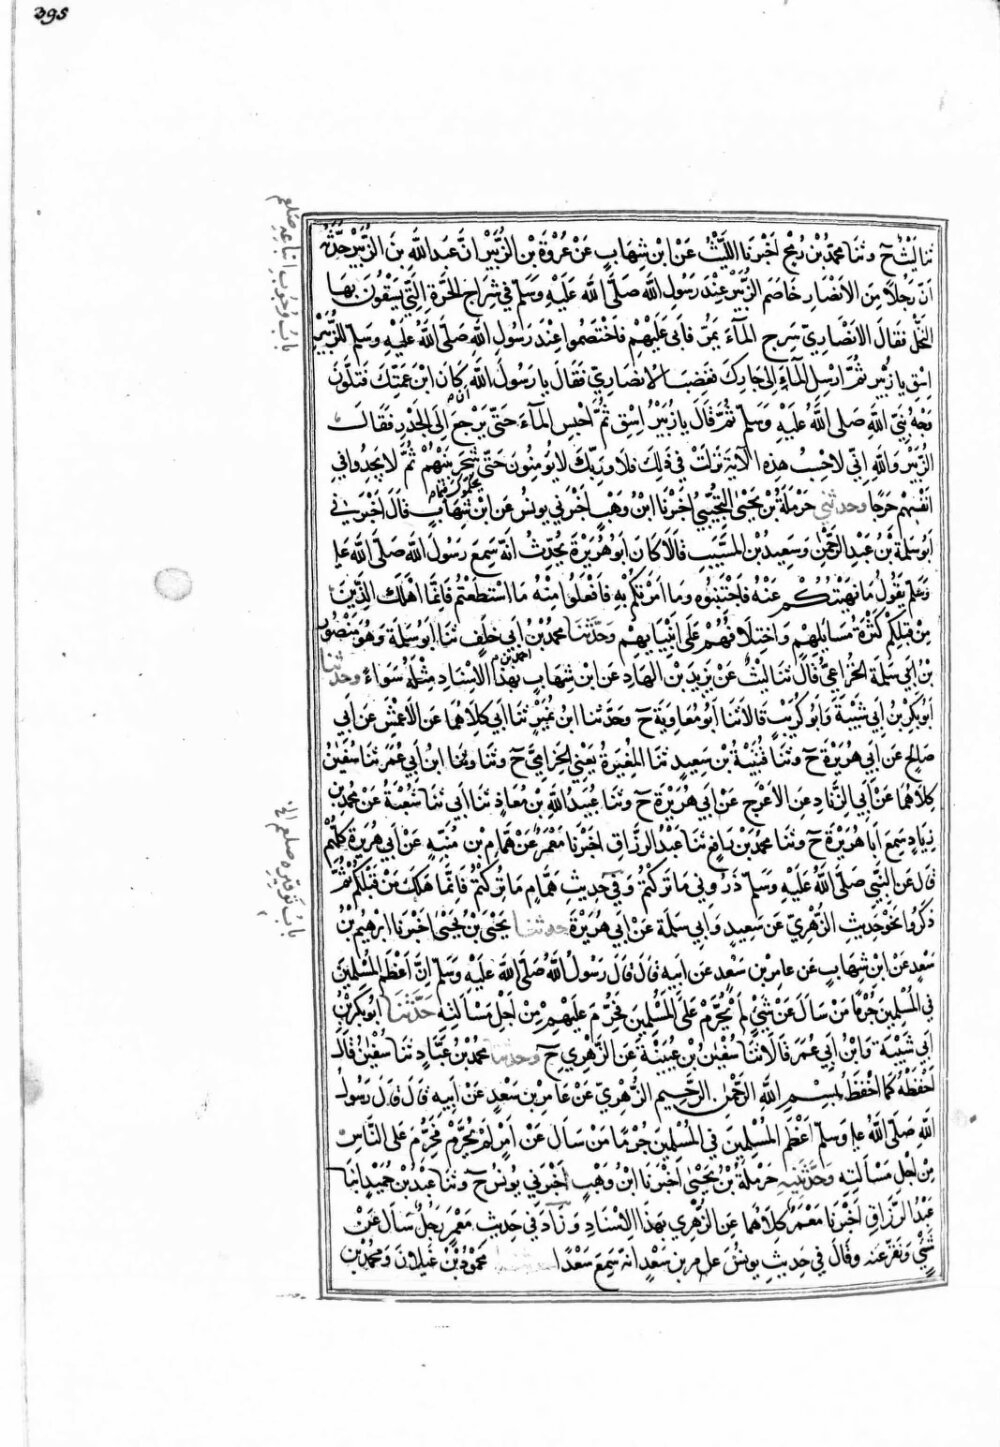 395
ثنا لَيْثٌ ح وثنا محمدُ بْنُ رُمْحٍ اَخْبَرنَا اللَّيْثُ عَنْ ابْنِ شِهَابٍ عَنْ عُرْوَةَ بْنِ الزُّبَيْرِ انَّ عَبدَ اللَّهِ بنَ الزُّبَيْرِ حَدَّثَهُ
اَنّ رَجُلًا مِنَ الأنصَارِ خَاصَمَ الزُّبَيْرَ عِنْدَ رَسُولِ اللَّه صَلَّى اللَّه عَلَيْهِ وَسَلّم في شِرَاجِ الحَرَّةِ الَّتِي يَسْقُونَ بِهَا
النَّخْلَ فقَالَ الانْصَارِيّ سَرِّحِ المَآءَ يَمُرُّ فَابَى عَلَيْهِمْ فَاخْتَصَمُوا عِنْدَ رَسُولِ اللَّهِ صَلّى اللَّهُ عليْهِ وَسَلم للزُّبَيْرِ
اسْقِ يا زُبَيْرُ ثُمَّ ارْسِلِ المَآءَ اِلَى جَارِكَ فَغَضِبَ الانصَارِيّ فَقَالَ يا رَسُولَ اللَّه اَنْ كانَ ابْنَ عَمَّتِكَ فَتَلَوَّنَ
وَجْهُ نَبِيِّ اللَّهِ صَلى اللَّهُ عَلَيْهِ وَسَلم ثُمَّ قَالَ يا زُبَيْرُ اِسْقِ ثُمَّ احْبِسِ المَآءَ حَتّى يَرْجِعَ اِلَى الجَدْرِ فَقَالَ
الزُّبَيْرُ وَاللَّهِ اِنّي لاحْسِبُ هذِهِ الآيَةَ نَزَلَتْ في ذَلِكَ فَلَا وَرَبِّكَ لا يُومِنُونَ حَتّى يُحَكِّمُوكَ فِيمَا شَجَرَ بَيْنَهُمْ ثُمَّ لا يَجِدُوا فِي
انفُسِهِمْ حَرَجًا وحدثني حَرْمَلَةُ بْنُ يَحْيَى التُّجِيبيُّ اَخْبَرنَا ابْنُ وَهْبٍ اَخْبَرَنِي يُونسُ عَن ابْنِ شِهَابٍ قَالَ اَخْبَرَني
اَبُو سَلَمَةَ بْنُ عَبدِ الرَّحْمٰنِ وَسَعِيدُ بْنُ المُسَيَّبِ قَالَا كَانَ اَبُو هُرَيْرَةَ يُحَدِّثُ انَّه سَمِعَ رَسُولَ اللَّه صَلّى اللَّه عَلـ
وَسَلم يَقُولُ مَا نَهَيْتُكُمْ عَنْهُ فَاجْتَنِبُوهُ وَمَا اَمَرْتُكُمْ بِهِ فَافْعَلُوا مِنْهُ مَا اسْتَطَعْتُم فَاِنَّمَا اَهْلَكَ الَّذِينَ
مِنْ قَبْلِكُمْ كَثْرَةُ مَسَائِلِهِمْ وَاخْتِلَافُهُمْ عَلَى اَنْبِيَايِهِمْ وَحَدّثَنَا محمدُ بْنُ احمد بن اَبي خَلَفٍ ثنا اَبُو سَلَمَةَ وَهُوَ مَنْصُور
بْنُ اَبي سَلَمَةَ الخُزَاعِيُّ قَالَ ثنا لَيْثٌ عَنْ يَزِيدَ بْنِ الهَادِ عَن ابْنِ شِهَابٍ بَهَذَا الاسْنَادِ مِثْلَهُ سَوَاءً وحدثنا
اَبُو بَكْرِ بْنُ اَبي شَيْبَةَ وَاَبُو كُرَيْبٍ قَالَا ثَنَا اَبُو مُعَاوِيَةَ ح وَحَدّثنا ابنُ نُمَيْرٍ ثنا اَبي كِلَاهُمَا عَنِ الاَعْمَشِ عَن اَبي
صَالِحٍ عَن اَبي هُرَيْرَةَ ح وَثنا قُتَيْبَةُ بْنُ سَعِيدٍ ثنا المُغِيْرَةُ يَعْنِي الحِزَامِيَّ ح وثنا ابنُ اَبي عُمَرَ ثَنا سُفْيٰنُ
كِلَاهُمَا عَنْ اَبي الزِّنَادِ عَنِ الاَعْرَجِ عَنْ اَبي هُرَيْرَةَ ح وَثنا عُبَيدُ اللَّهِ بْنُ مُعَاذٍ ثنا اَبي ثنا شُعْبَةُ عَنْ محُمدِ بْنِ
زِيَادٍ سَمِعَ اَبَا هُرَيْرَةَ ح وثنا محمدُ بْنُ رَافِعٍ ثنا عَبْدُ الرَّزَّاقِ اخْبَرَنَا مَعْمَرٌ عَنْ هَمَّامِ بْنِ مُنَبِّهٍ عَنْ اَبي هُرَيرَةَ كُلُّهُمْ
قَالَ عَنِ النَّبي صَلَّى اللَّهُ عَلَيْهِ وَسَلّم ذَرُوني مَا تَرَكْتُكُمْ وَفي حَدِيثِ هَمَّامٍ مَا تُرِكْتُمْ فَاِنَّمَا هَلَكَ مَنْ قَبْلَكُمْ ثُمَّ
ذكَرُوا نَحْوَ حَدِيثِ الزُّهْرِيّ عَن سَعِيدٍ وَابي سَلَمَةَ عَن اَبي هُرَيْرَةَ حدثنا يَحْيَى بْنُ يَحْيَى اَخْبَرنَا ابْرهِيمُ بْنُ
سَعْدٍ عَن ابْنِ شِهَابٍ عَن عامِرِ بْنِ سَعْدٍ عَن اَبِيهِ قَالَ قَالَ رَسُولُ اللَّه صَلّى اللَّهُ عَلَيْهِ وَسَلّم اِنَّ اَعْظَمَ المُسْلِمِينَ
فِي المُسْلِمِينَ جُرْمًا مَنْ سَالَ عَنْ شَيْءٍ لَمْ يُحَرَّمْ عَلَى المُسْلِمِينَ فَحُرِّمَ عَلَيْهِمْ مِنْ اَجْلِ مَسْألَتِهِ حَدّثَنَا اَبُو بَكْرِ بْنُ
اَبي شَيْبَةَ وَابْنُ اَبي عُمَرَ قَالَا ثَنَا سُفْيٰنُ بْنُ عُيَيْنَةَ عَنِ الزُّهْرِي ح وحدثنا محمدُ بْنُ عَبَّادٍ ثَنا سُفْيٰنُ قَالَ
اَحْفَظُهُ كَمَا اَحْفَظُ بِسْمِ اللَّهِ الرَّحْمٰنِ الرَّحِيمِ الزُّهْرِيّ عَن عَامِرِ بْنِ سَعْدٍ عَنْ اَبِيهِ قَالَ قَالَ رَسُولُ
اللَّهِ صَلّى اللَّهُ عليه وسلم اَعْظَمُ المُسْلِمِينَ في المُسْلِمِينَ جُرْمًا مَنْ سَالَ عَنْ اَمْرٍ لَمْ يُحَرَّمْ فَحُرِّمَ عَلَى النَّاسِ
مِنْ اَجْلِ مَسْالَتِهِ وَحَدّثَنِيهِ حَرمَلَةُ بْنُ يَحْيَى اَخْبَرَنا ابْنُ وَهْبٍ اَخْبَرني يُونسُ ح وَثَنا عَبْدُ بْنُ حُمَيْدٍ انا
عَبْدُ الرَّزَّاقِ اَخْبَرنا مَعْمَرٌ كِلَاهُمَا عَنِ الزُّهْرِي بَهَذَا الاِسْنَادِ وَزَادَ في حَدِيثِ مَعْمَرٍ رَجُلٌ سَالَ عَنْ
شَيْءٍ وَنَقَّرَ عَنْه وَقَالَ فِي حَدِيثِ يُونُسَ عَامِرِ بْنِ سَعْدٍ انّه سَمِعَ سَعْدًا حدثنا مَحْمُودُ بْنُ غَيْلَانَ وَمحُمدُ بْنُ
بابُ وُجُوبِ اتباعه صَلعم
بابُ تَوقيره صلعم الخ